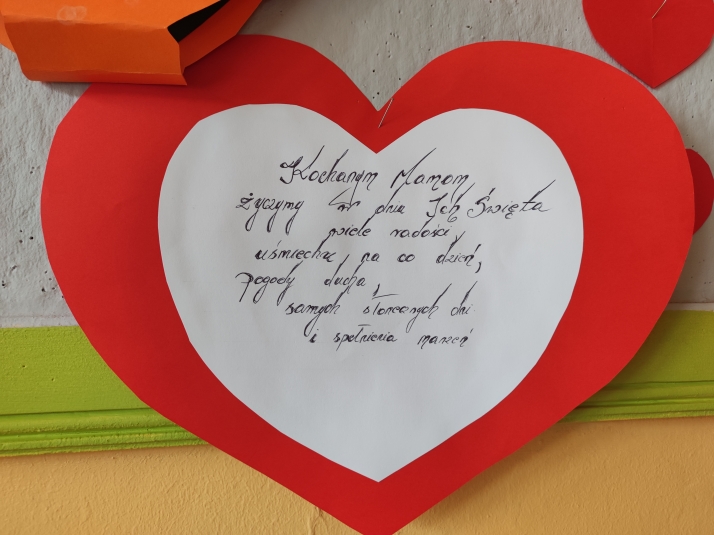 Kochanym Mamom
życzymy w dniu Ich Święta
wiele radości,
uśmiechu na co dzień,
pogody ducha,
samych słonecznych dni
i spełnienia marzeń